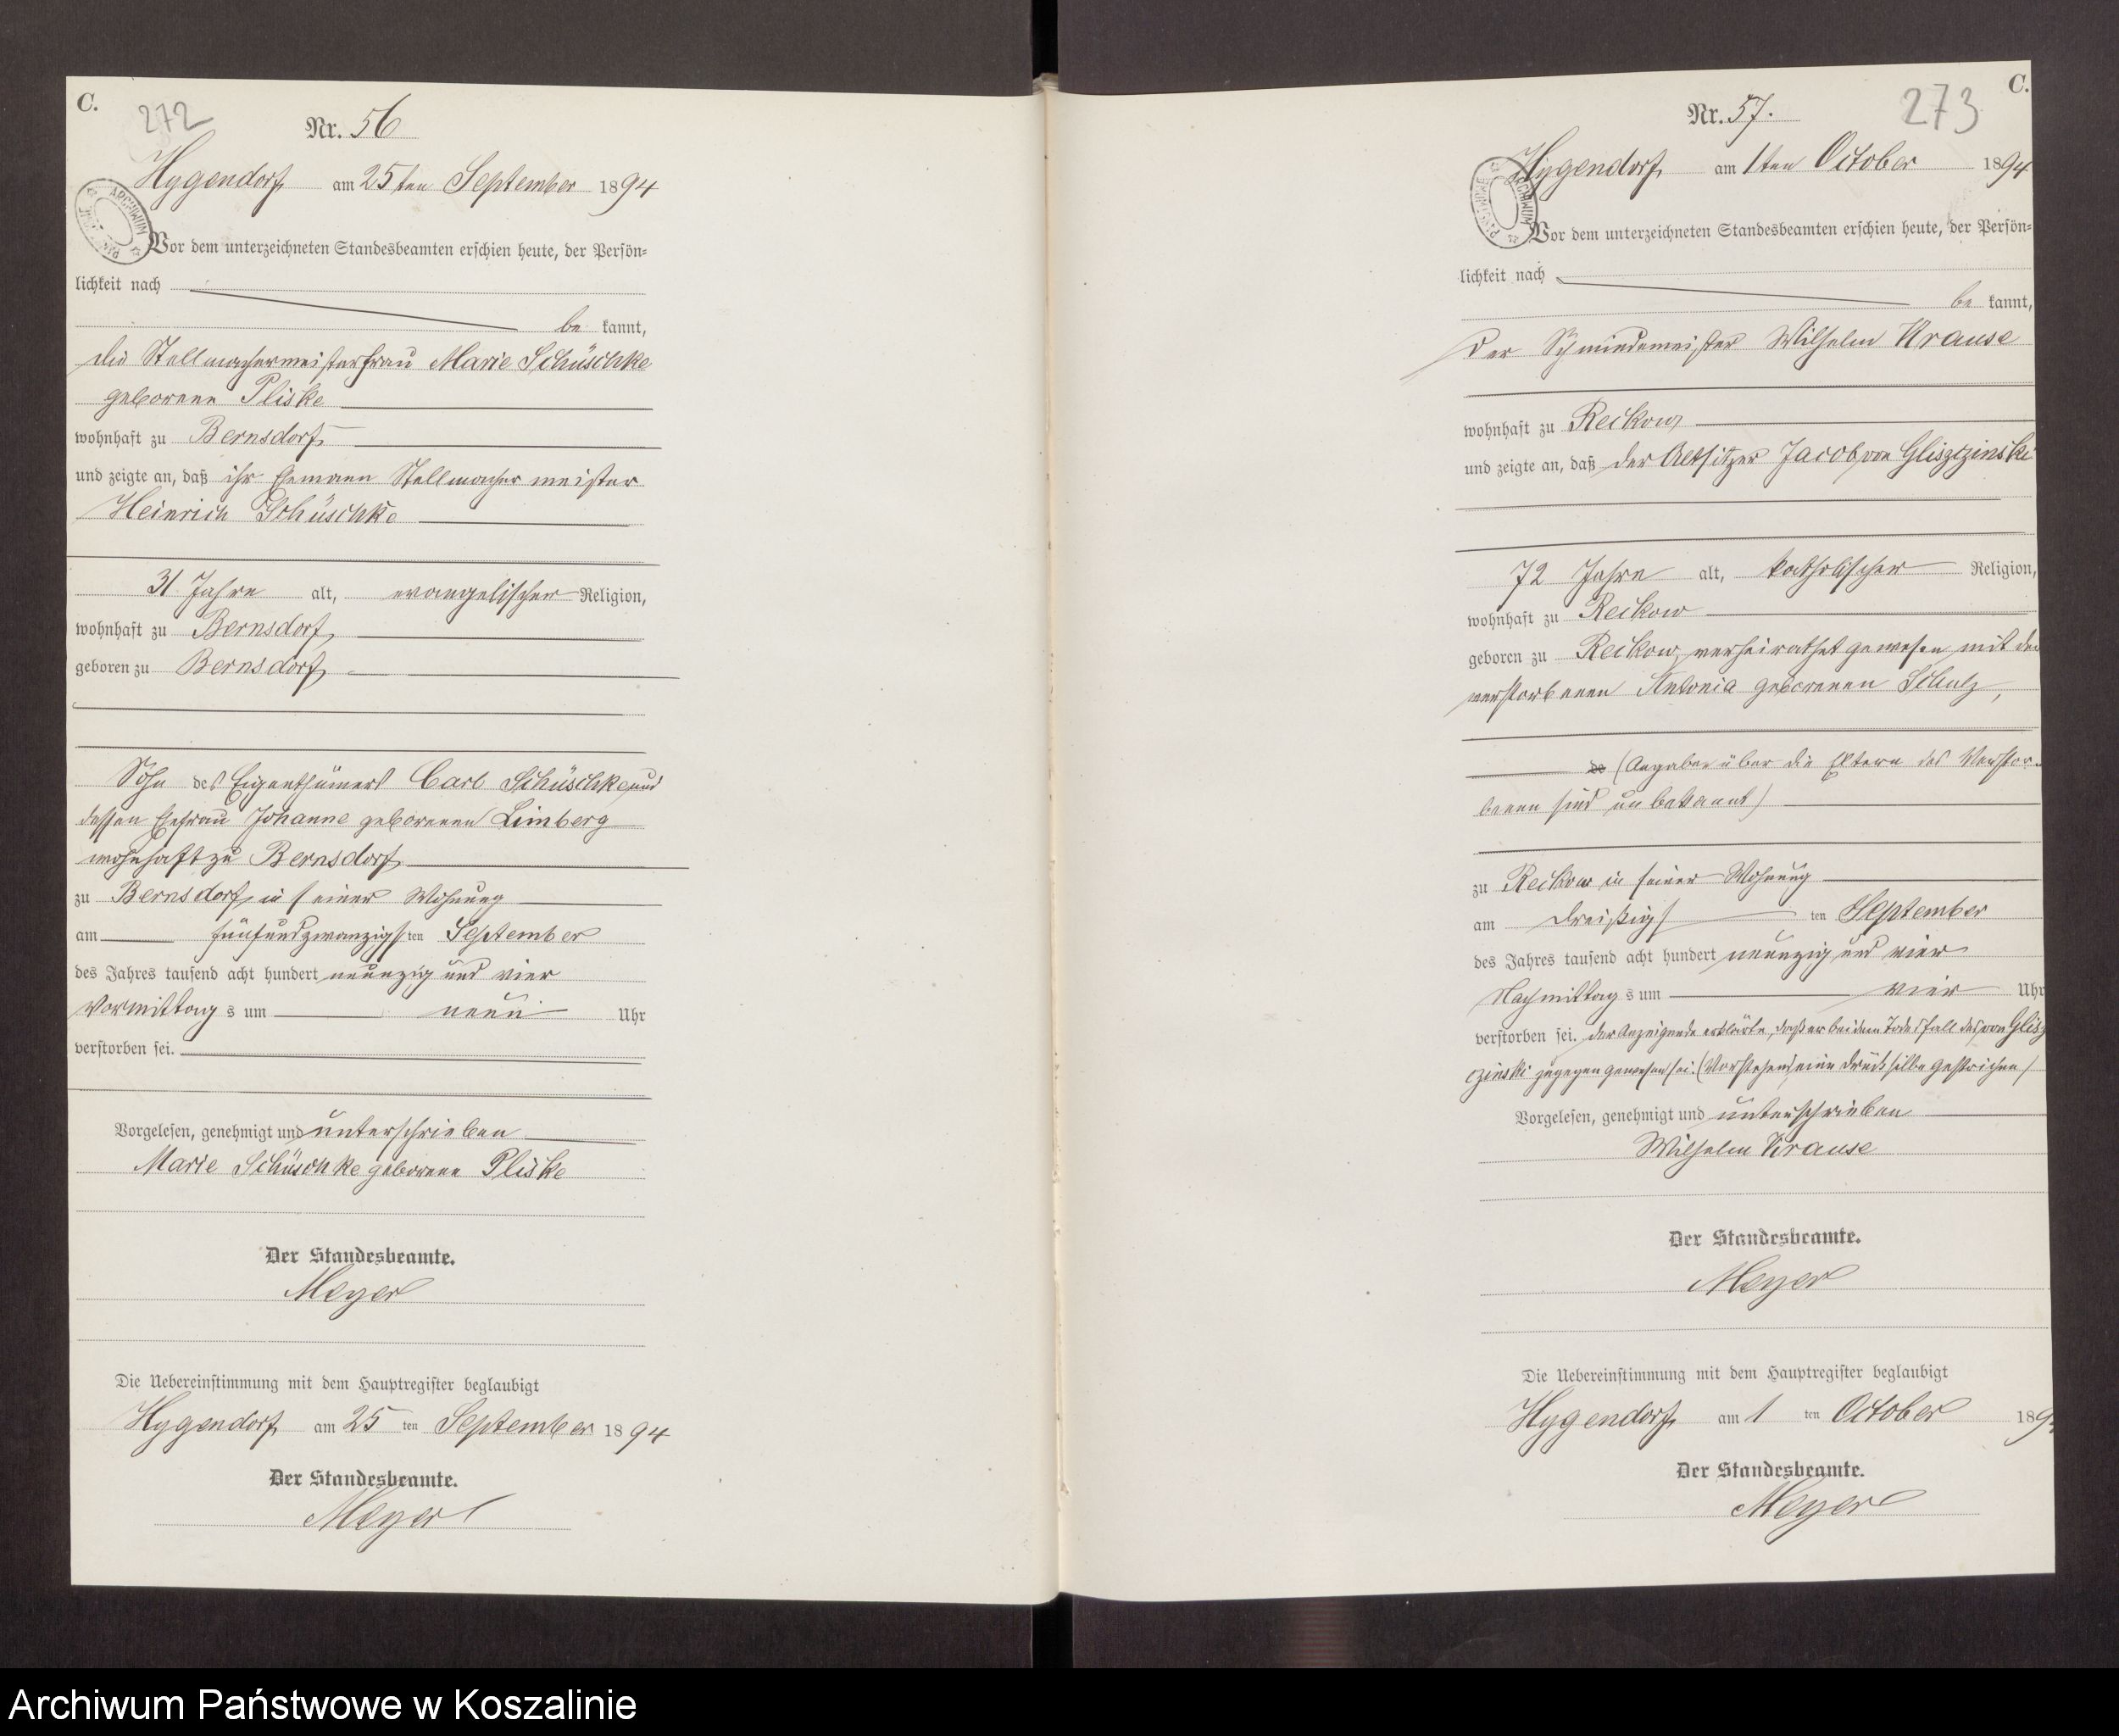 C.
272
Nr. 56
Hygendorf am 25ten September 1894
ARCHIWUM
Vor dem unterzeichneten Standesbeamten erschien heute, der Persön-
lichkeit nach
be kannt,
die Stellmachermeisterfrau Marie Schüschke
geborene Pliske
wohnhaft zu Bernsdorf
und zeigte an, daß ihr Ehemann Stellmachermeister
Heinrich Schüschke
31 Jahre alt, evangelischer Religion,
wohnhaft zu Bernsdorf,
geboren zu Bernsdorf,
Sohn des Eigenthümers Carl Schüschke und
dessen Ehefrau Johanne geborenen Limberg
wohnhaft zu Bernsdorf
zu Bernsdorf in seiner Wohnung
am fünfundzwanzigsten September
des Jahres tausend acht hundert neunzig und vier
Vormittags um neun Uhr
verstorben sei.
Vorgelesen, genehmigt und unterschrieben
Marie Schüschke geborene Pliske
Der Standesbeamte.
Meyer
Die Uebereinstimmung mit dem Hauptregister beglaubigt
Hygendorf am 25 ten September 1894
Der Standesbeamte.
Meyer
C.
273
Nr. 57.
Hygendorf, am 1ten October 1894
ARCHIWUM PAŃSTWOWE
Vor dem unterzeichneten Standesbeamten erschien heute, der Persön-
lichkeit nach
be kannt,
der Schmiedemeister Wilhelm Krause
wohnhaft zu Reckow
und zeigte an, daß der Altsitzer Jacob von Gliszczinski
72 Jahre alt, katholischer Religion,
wohnhaft zu Reckow
geboren zu Reckow, verheirathet gewesen mit der
verstorbenen Antonia geborenen Schulz,
(Angaben über die Eltern des Verstor-
benen sind unbekannt)
zu Reckow in seiner Wohnung
am dreißigsten September
des Jahres tausend acht hundert neunzig und vier
Nachmittags um vier Uhr
verstorben sei. Der Anzeigende erklärte, daß er bei dem Todesfall des von Glisz
czinski zugegen gewesen sei. (Vorstehend eine Drucksilbe gestrichen)
Vorgelesen, genehmigt und unterschrieben
Wilhelm Krause
Der Standesbeamte.
Meyer
Die Uebereinstimmung mit dem Hauptregister beglaubigt
Hygendorf, am 1 ten October 189
Der Standesbeamte.
Meyer
Archiwum Państwowe w Koszalinie